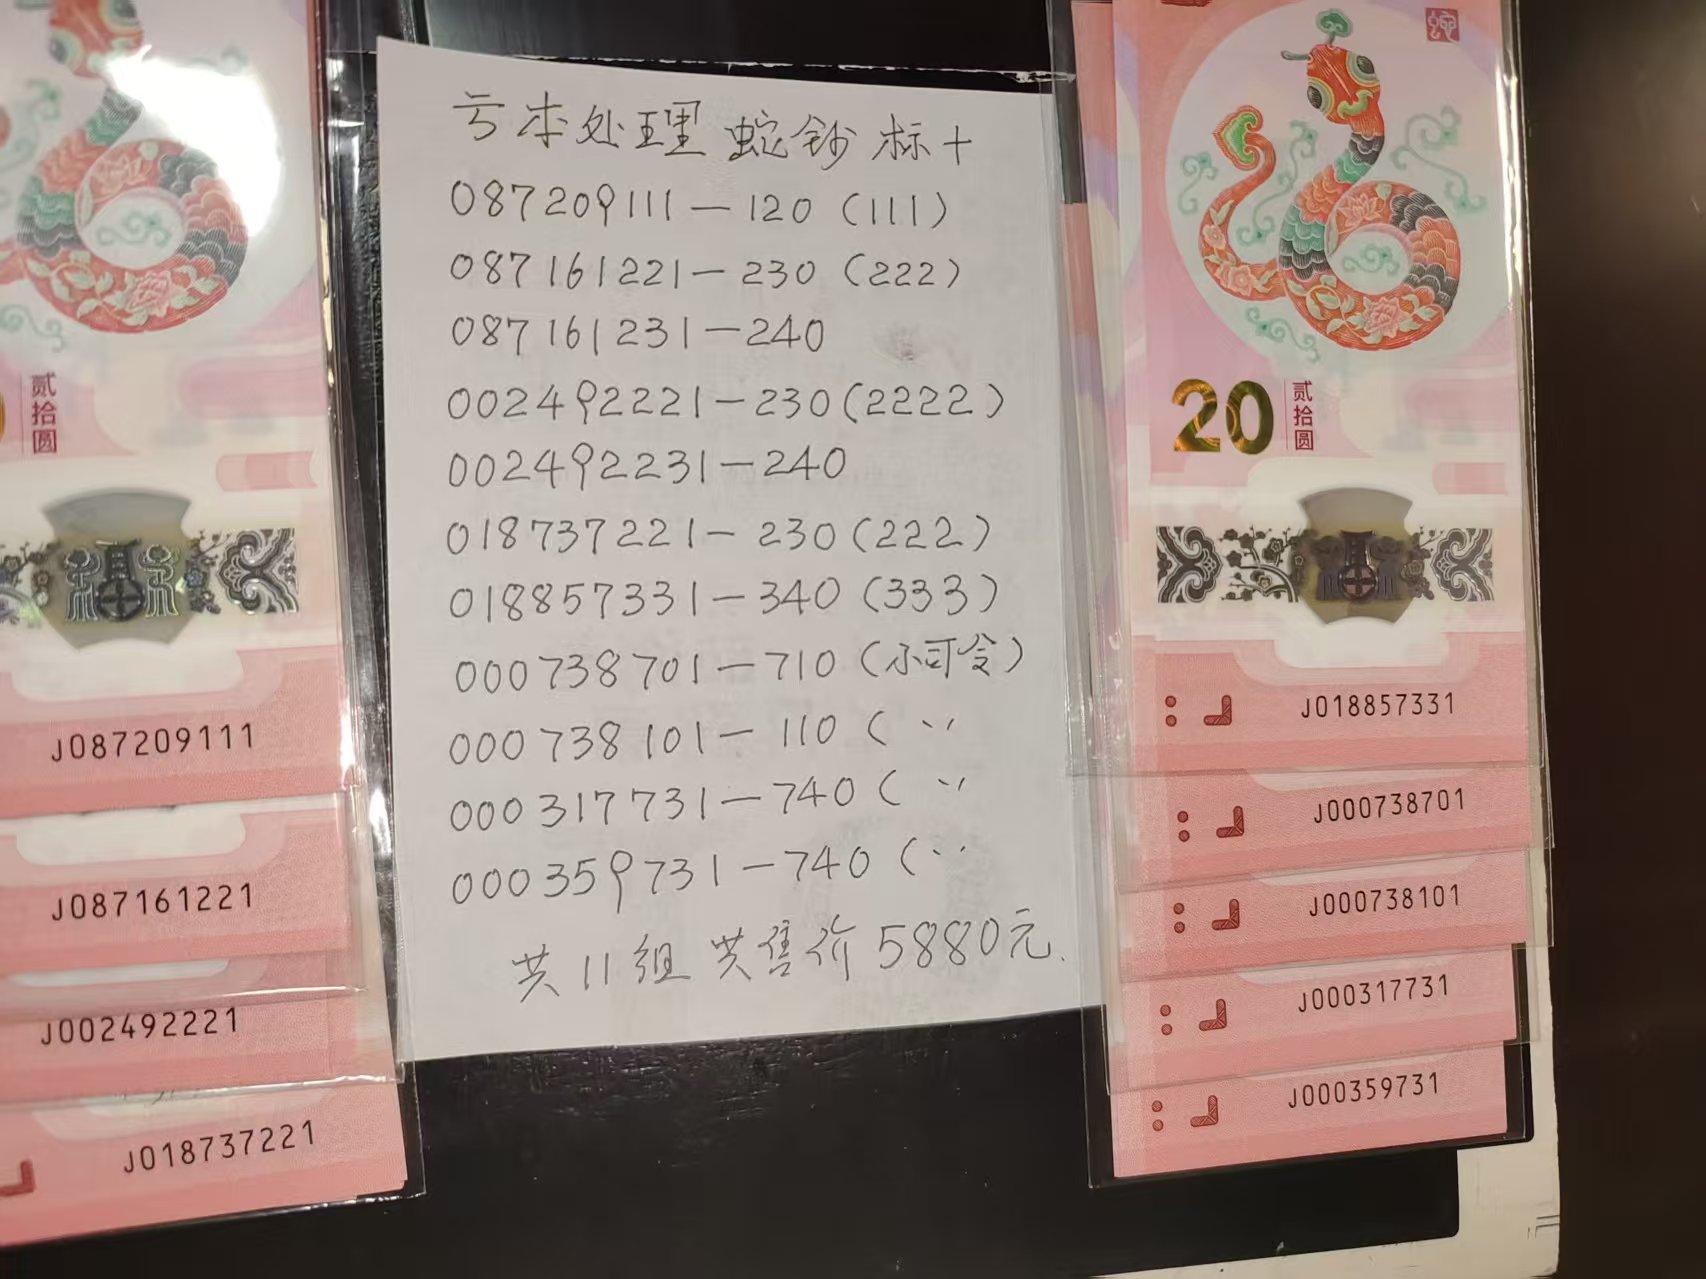 亏本处理 蛇钞 标十
087209111—120（111）
087161221—230（222）
087161231—240
002492221—230（2222）
002492231—240
018737221—230（222）
018857331—340（333）
000738701—710（小司令）
000738101—110（ 〃
000317731—740（ 〃
000359731—740（ 〃
共11组 共售价5880元.
贰拾圆
J087209111
J087161221
J002492221
J018737221
20
贰拾圆
J018857331
J000738701
J000738101
J000317731
J000359731